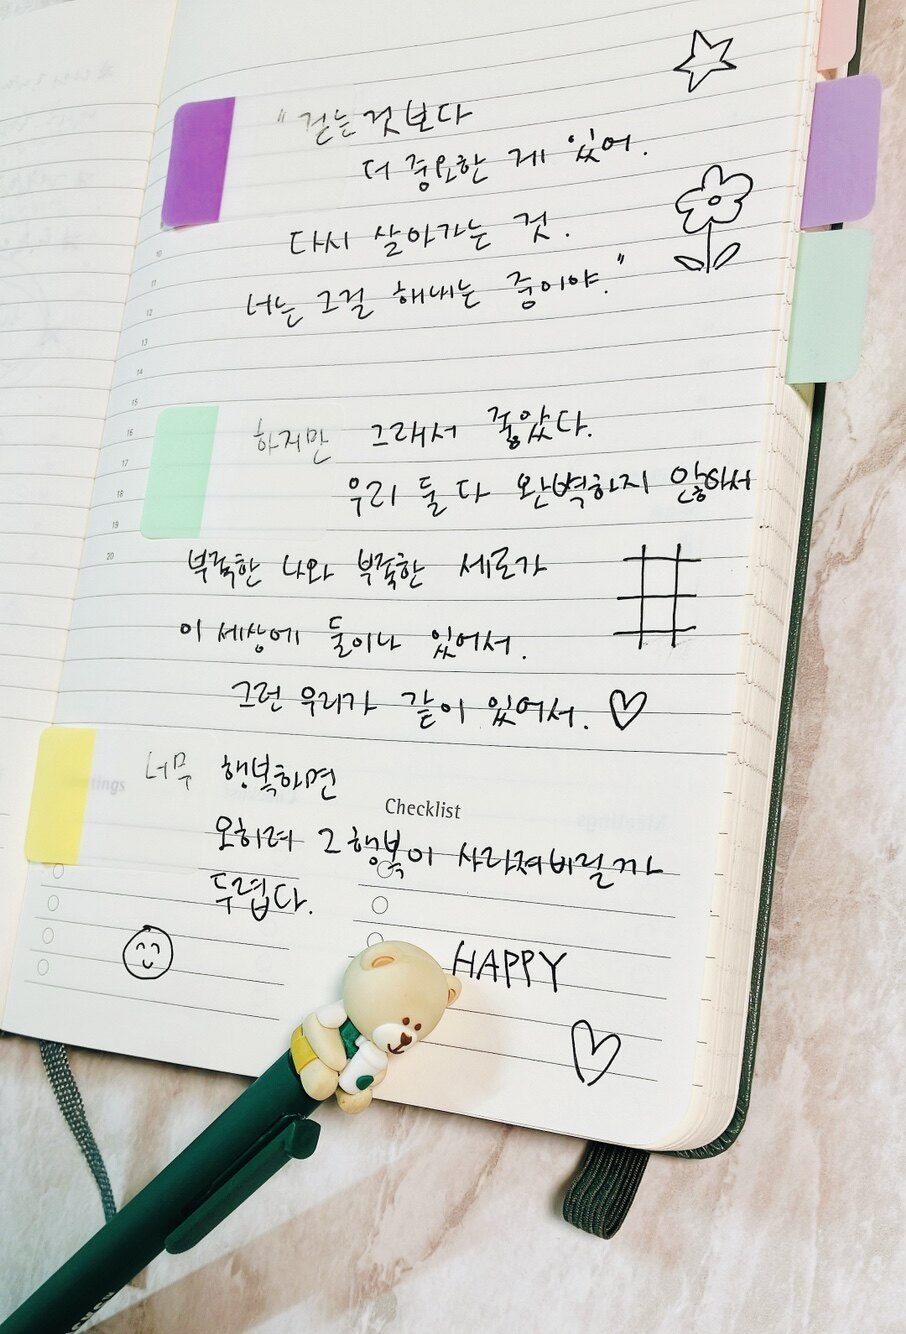 "걷는 것보다
더 중요한 게 있어.
다시 살아가는 것.
너는 그걸 해내는 중이야."
하지만 그래서 좋았다.
우리 둘 다 완벽하지 않아서
부족한 나와 부족한 세로가
이 세상에 둘이나 있어서.
그런 우리가 같이 있어서.
너무 행복하면
Checklist
오히려 그 행복이 사라져버릴까
두렵다.
HAPPY
10
11
12
13
14
15
16
17
18
19
20